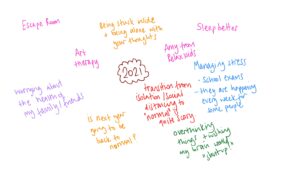 Escape Room
Being stuck inside
+ being alone with
your thoughts
Sleep better
Art
therapy
Amy from
Relax kids
2021
Managing stress
- School exams
- they are happening
every week for
some people
Worrying about
the health of
my family/friends
transition from
isolation/social
distancing to
"normal" is
quite scary
Is next year
going to be
back to
normal?
overthinking
things + wishing
my brain would
"shut up"